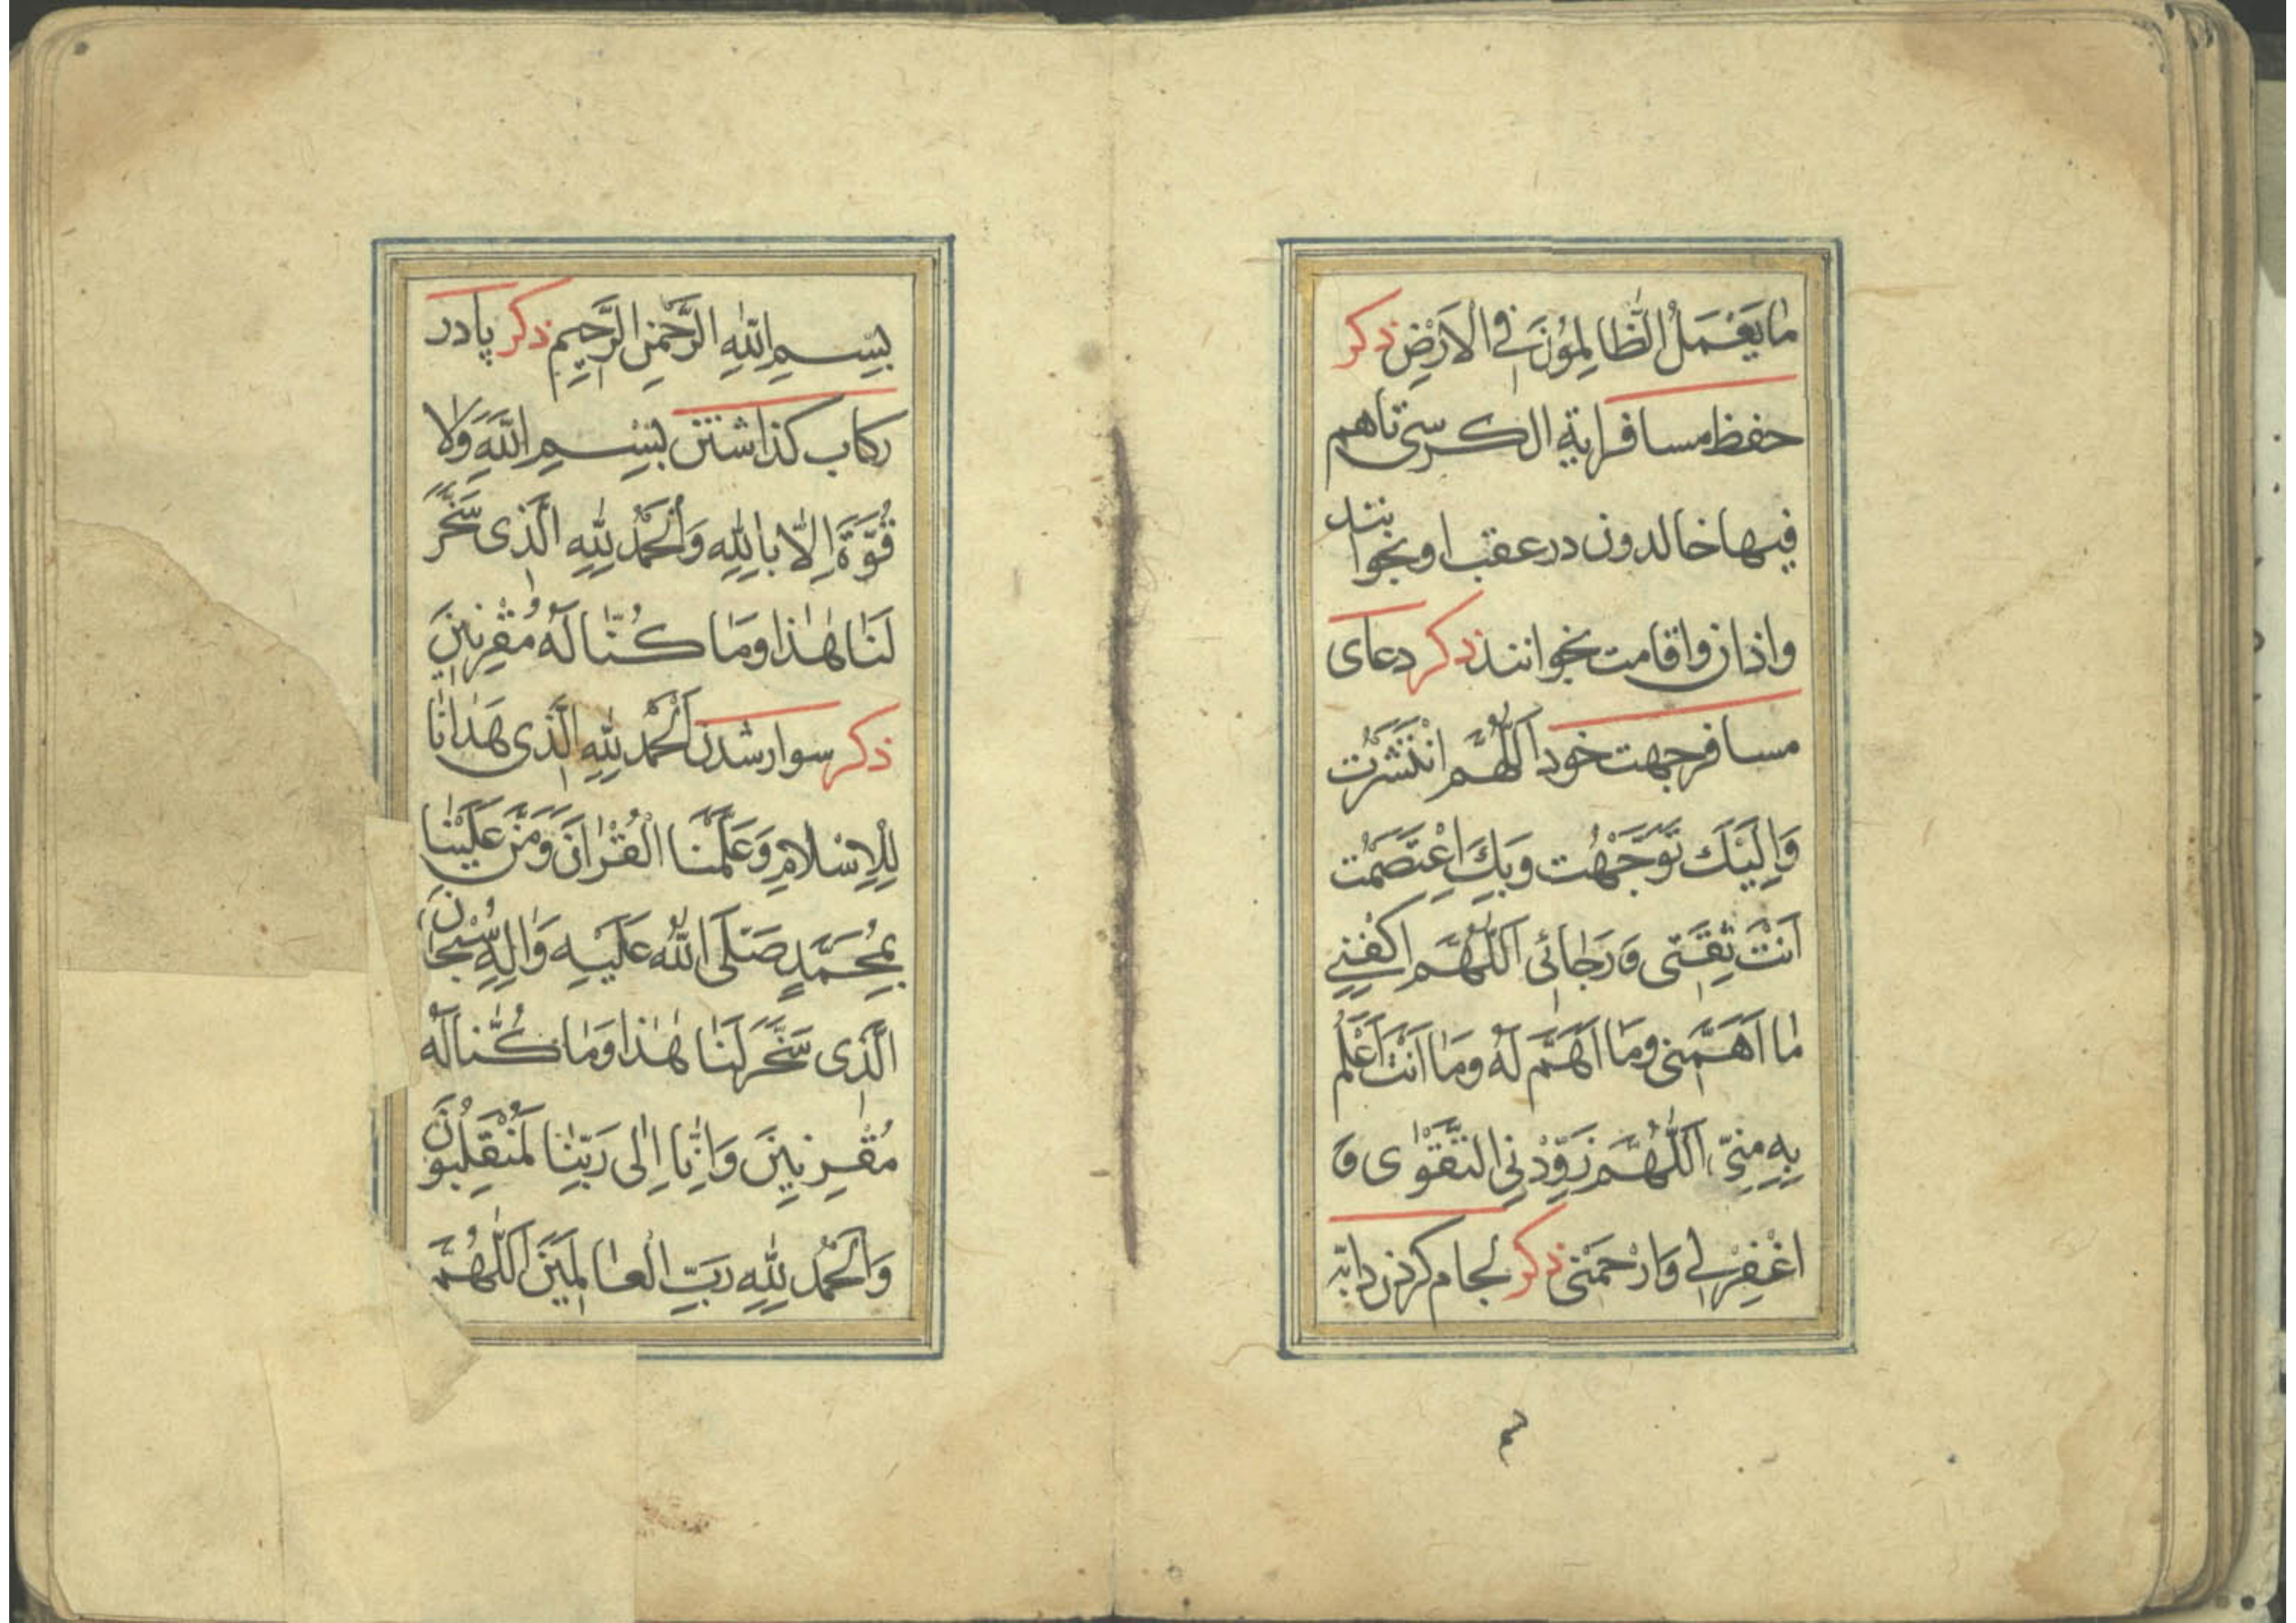 مَا يَعْمَلُ الظَّالِمُونَ فِي الْاَرْضِ ذكر
حفظ مسافر اية الكرسی تا هم
فیها خالدون در عقب او بخوانند
و اذان و اقامت بخوانند ذكر دعای
مسافر جهت خود اَللّٰهُمَّ انْتَشَرْتُ
وَاِلَيْكَ تَوَجَّهْتُ وَبِكَ اعْتَصَمْتُ
اَنْتَ ثِقَتِی وَرَجَائِی اَللّٰهُمَّ اكْفِنِي
مَا اَهَمَّنِی وَمَا اَهَمَّ لَهُ وَمَا اَنْتَ اَعْلَمُ
بِهِ مِنِّی اَللّٰهُمَّ زَوِّدْنِي التَّقْوٰی وَ
اغْفِرْلِي وَارْحَمْنِی ذكر لجام كردن دابّه
٤
بِسْمِ اللّٰهِ الرَّحْمٰنِ الرَّحِيمِ ذكر پا در
ركاب كذاشتن بِسْمِ اللّٰهِ وَلَا
قُوَّةَ اِلَّا بِاللّٰهِ وَالْحَمْدُ لِلّٰهِ الَّذِی سَخَّرَ
لَنَا هٰذَا وَمَا كُنَّا لَهُ مُقْرِنِينَ
ذكر سوار شدن اَلْحَمْدُ لِلّٰهِ الَّذِی هَدَانَا
لِلْاِسْلَامِ وَعَلَّمَنَا الْقُرْاٰنَ وَمَنَّ عَلَيْنَا
بِمُحَمَّدٍ صَلَّى اللّٰهُ عَلَيْهِ وَاٰلِهِ سُبْحَانَ
الَّذِی سَخَّرَ لَنَا هٰذَا وَمَا كُنَّا لَهُ
مُقْرِنِينَ وَاِنَّا اِلٰی رَبِّنَا لَمُنْقَلِبُونَ
وَالْحَمْدُ لِلّٰهِ رَبِّ الْعَالَمِينَ اَللّٰهُمَّ